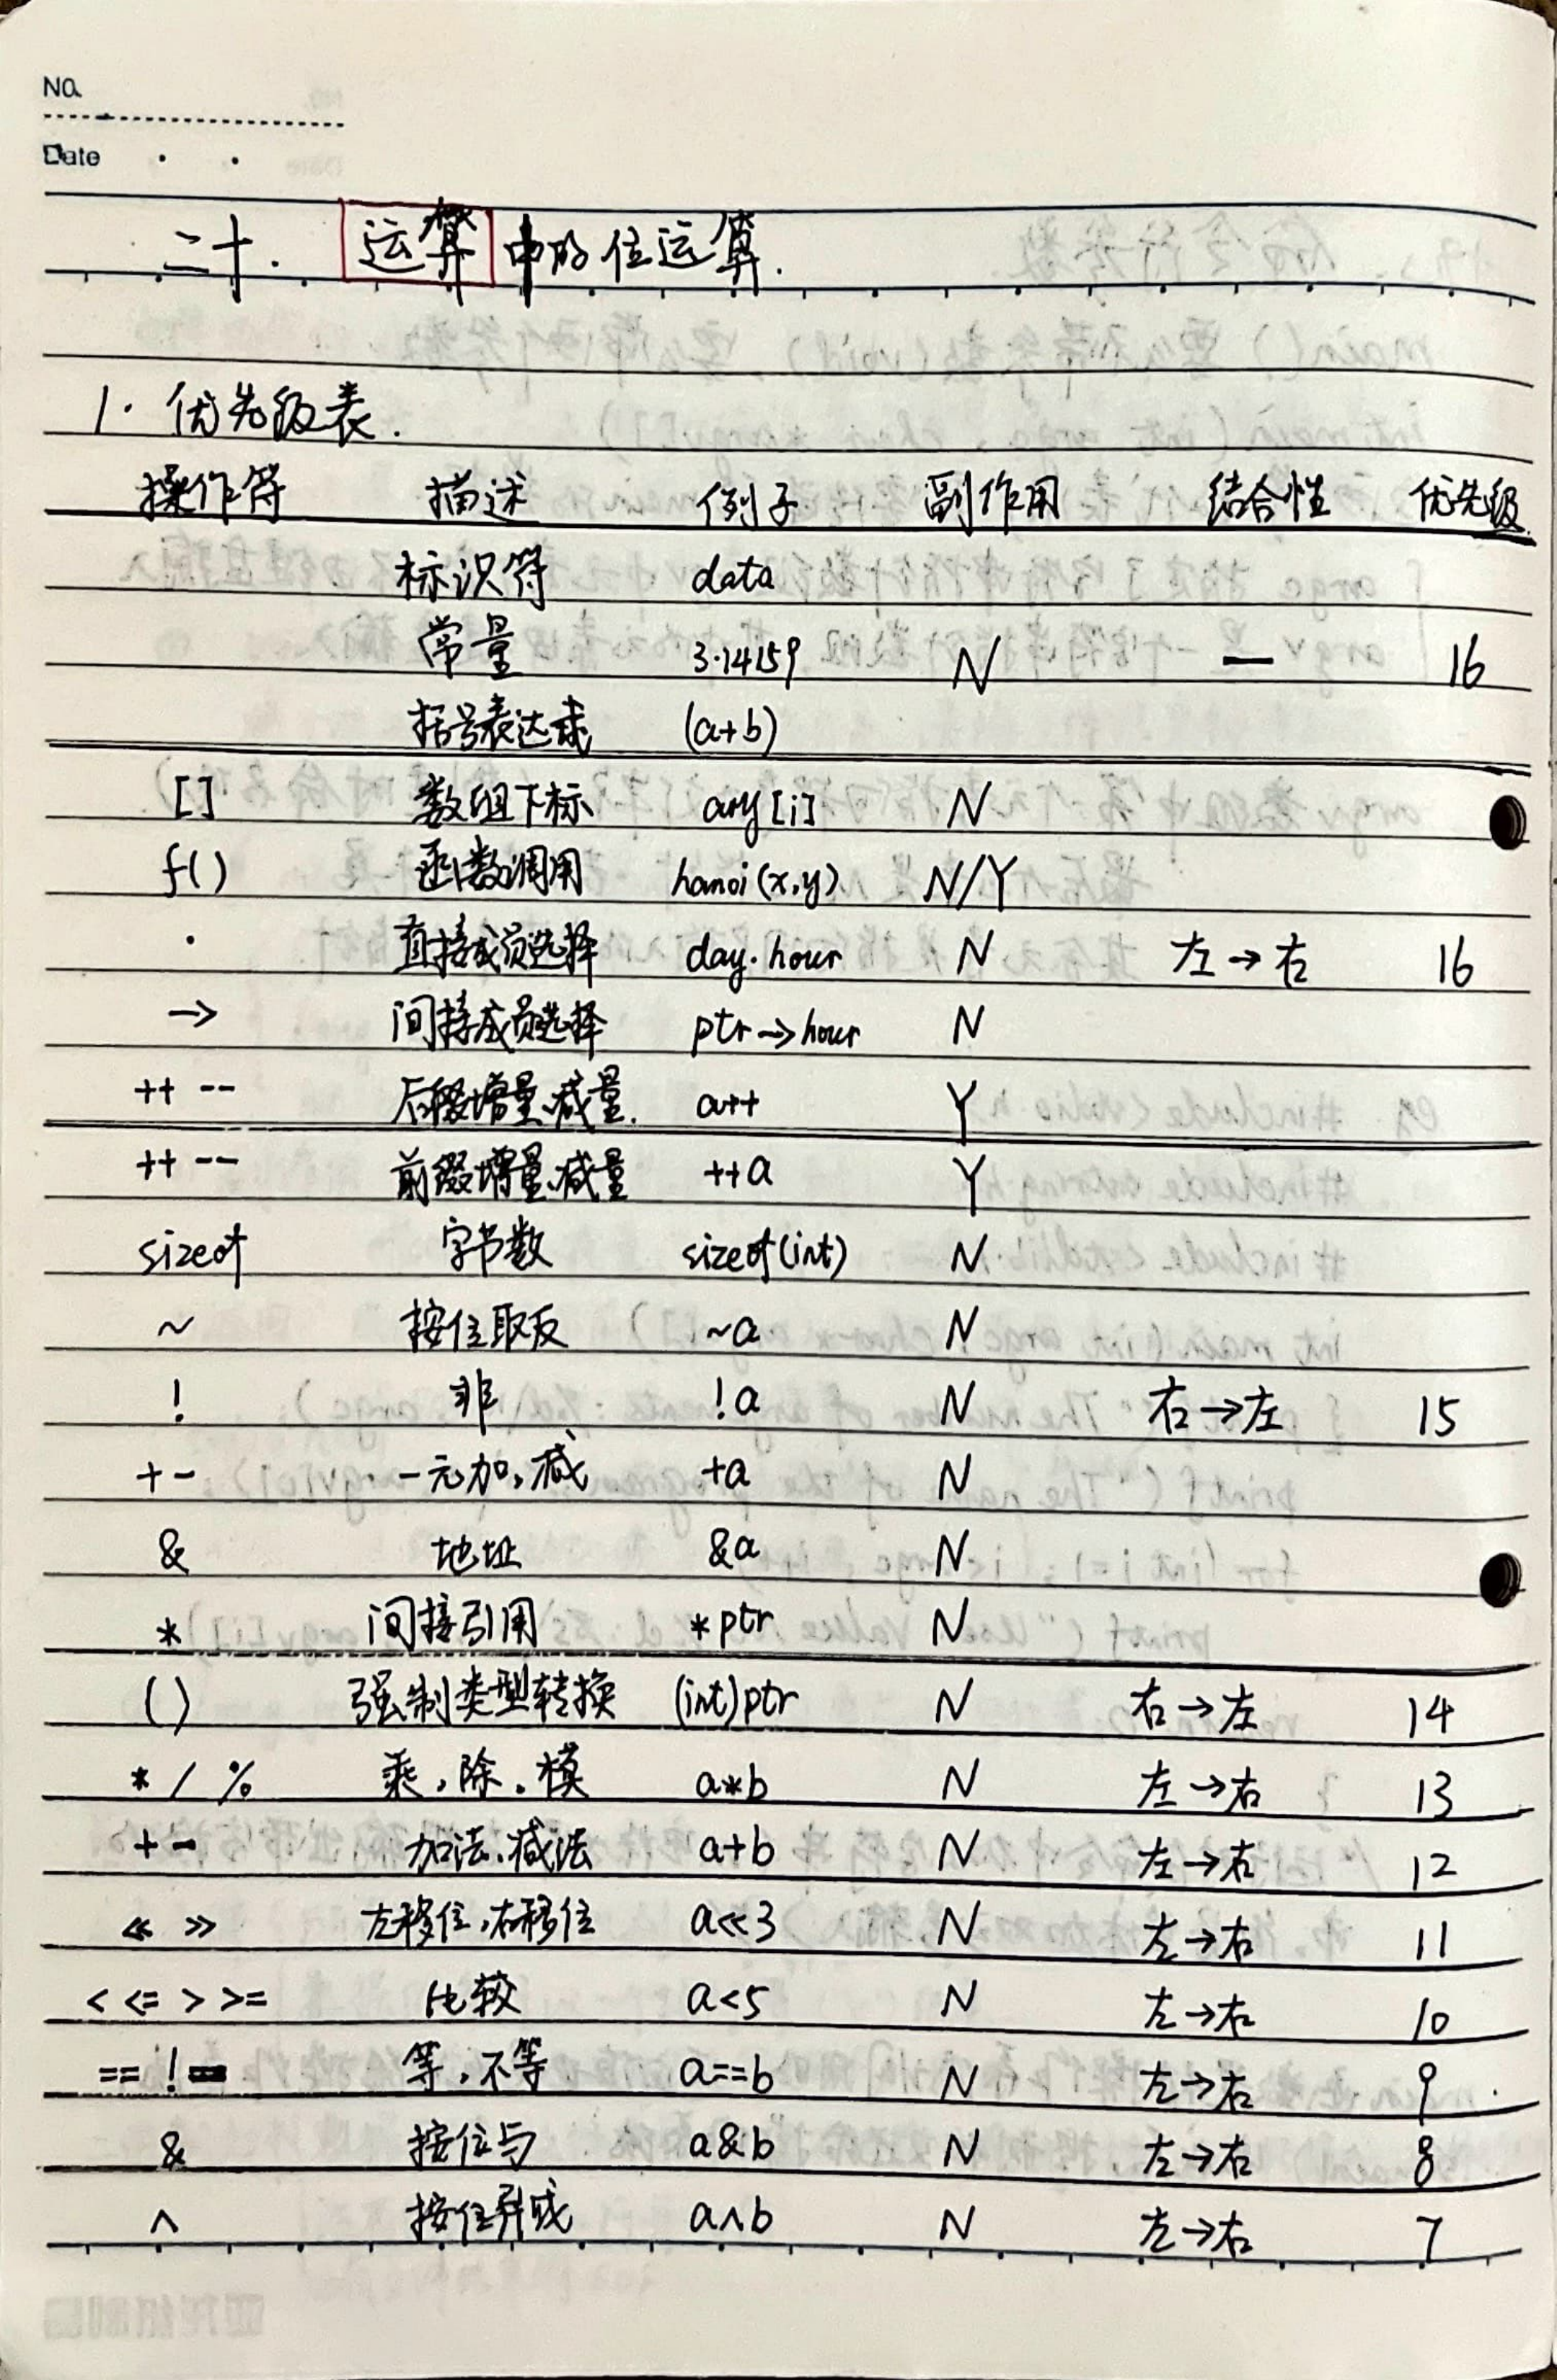 No.
Date
二十. 运算中的位运算.
1. 优先级表.
操作符 描述 例子 副作用 结合性 优先级
标识符 data
常量 3.14159 N — 16
括号表达式 (a+b)
[] 数组下标 ary[i] N
f() 函数调用 hanoi(x,y) N/Y
. 直接成员选择 day.hour N 左→右 16
-> 间接成员选择 ptr->hour N
++ -- 后缀增量、减量. a++ Y
++ -- 前缀增量、减量 ++a Y
sizeof 字节数 sizeof(int) N
~ 按位取反 ~a N
! 非 !a N 右→左 15
+ - 一元加,减 +a N
& 地址 &a N
* 间接引用 *ptr N
() 强制类型转换 (int)ptr N 右→左 14
* / % 乘,除,模 a*b N 左→右 13
+ - 加法、减法 a+b N 左→右 12
<< >> 左移位,右移位 a<<3 N 左→右 11
< <= > >= 比较 a<5 N 左→右 10
== != 等,不等 a==b N 左→右 9
& 按位与 a&b N 左→右 8
^ 按位异或 a^b N 左→右 7